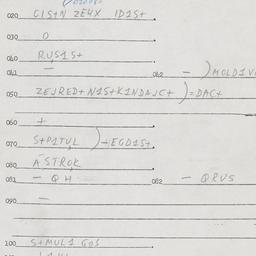 020 CIS+N ZE4X ID1S+
030 O
040 RUS1S+
041 — 042 — ) MOLD1V
050 ZEJRED+N1S+K1NDAJC+ ) = DAC+
060 +
070 S+P1TUL ) + EGD1S+
080 A STROK
081 — QH 082 — QRUS
090 —
100 S+MUL1 GOS